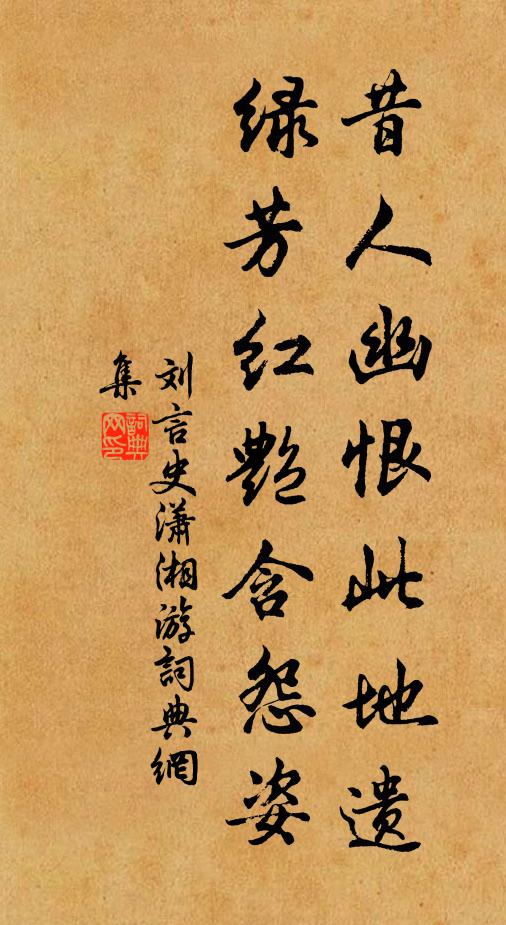 昔人幽恨此地遗
绿芳红艳含怨姿
刘言史潇湘游詞典網
集
詞典网印